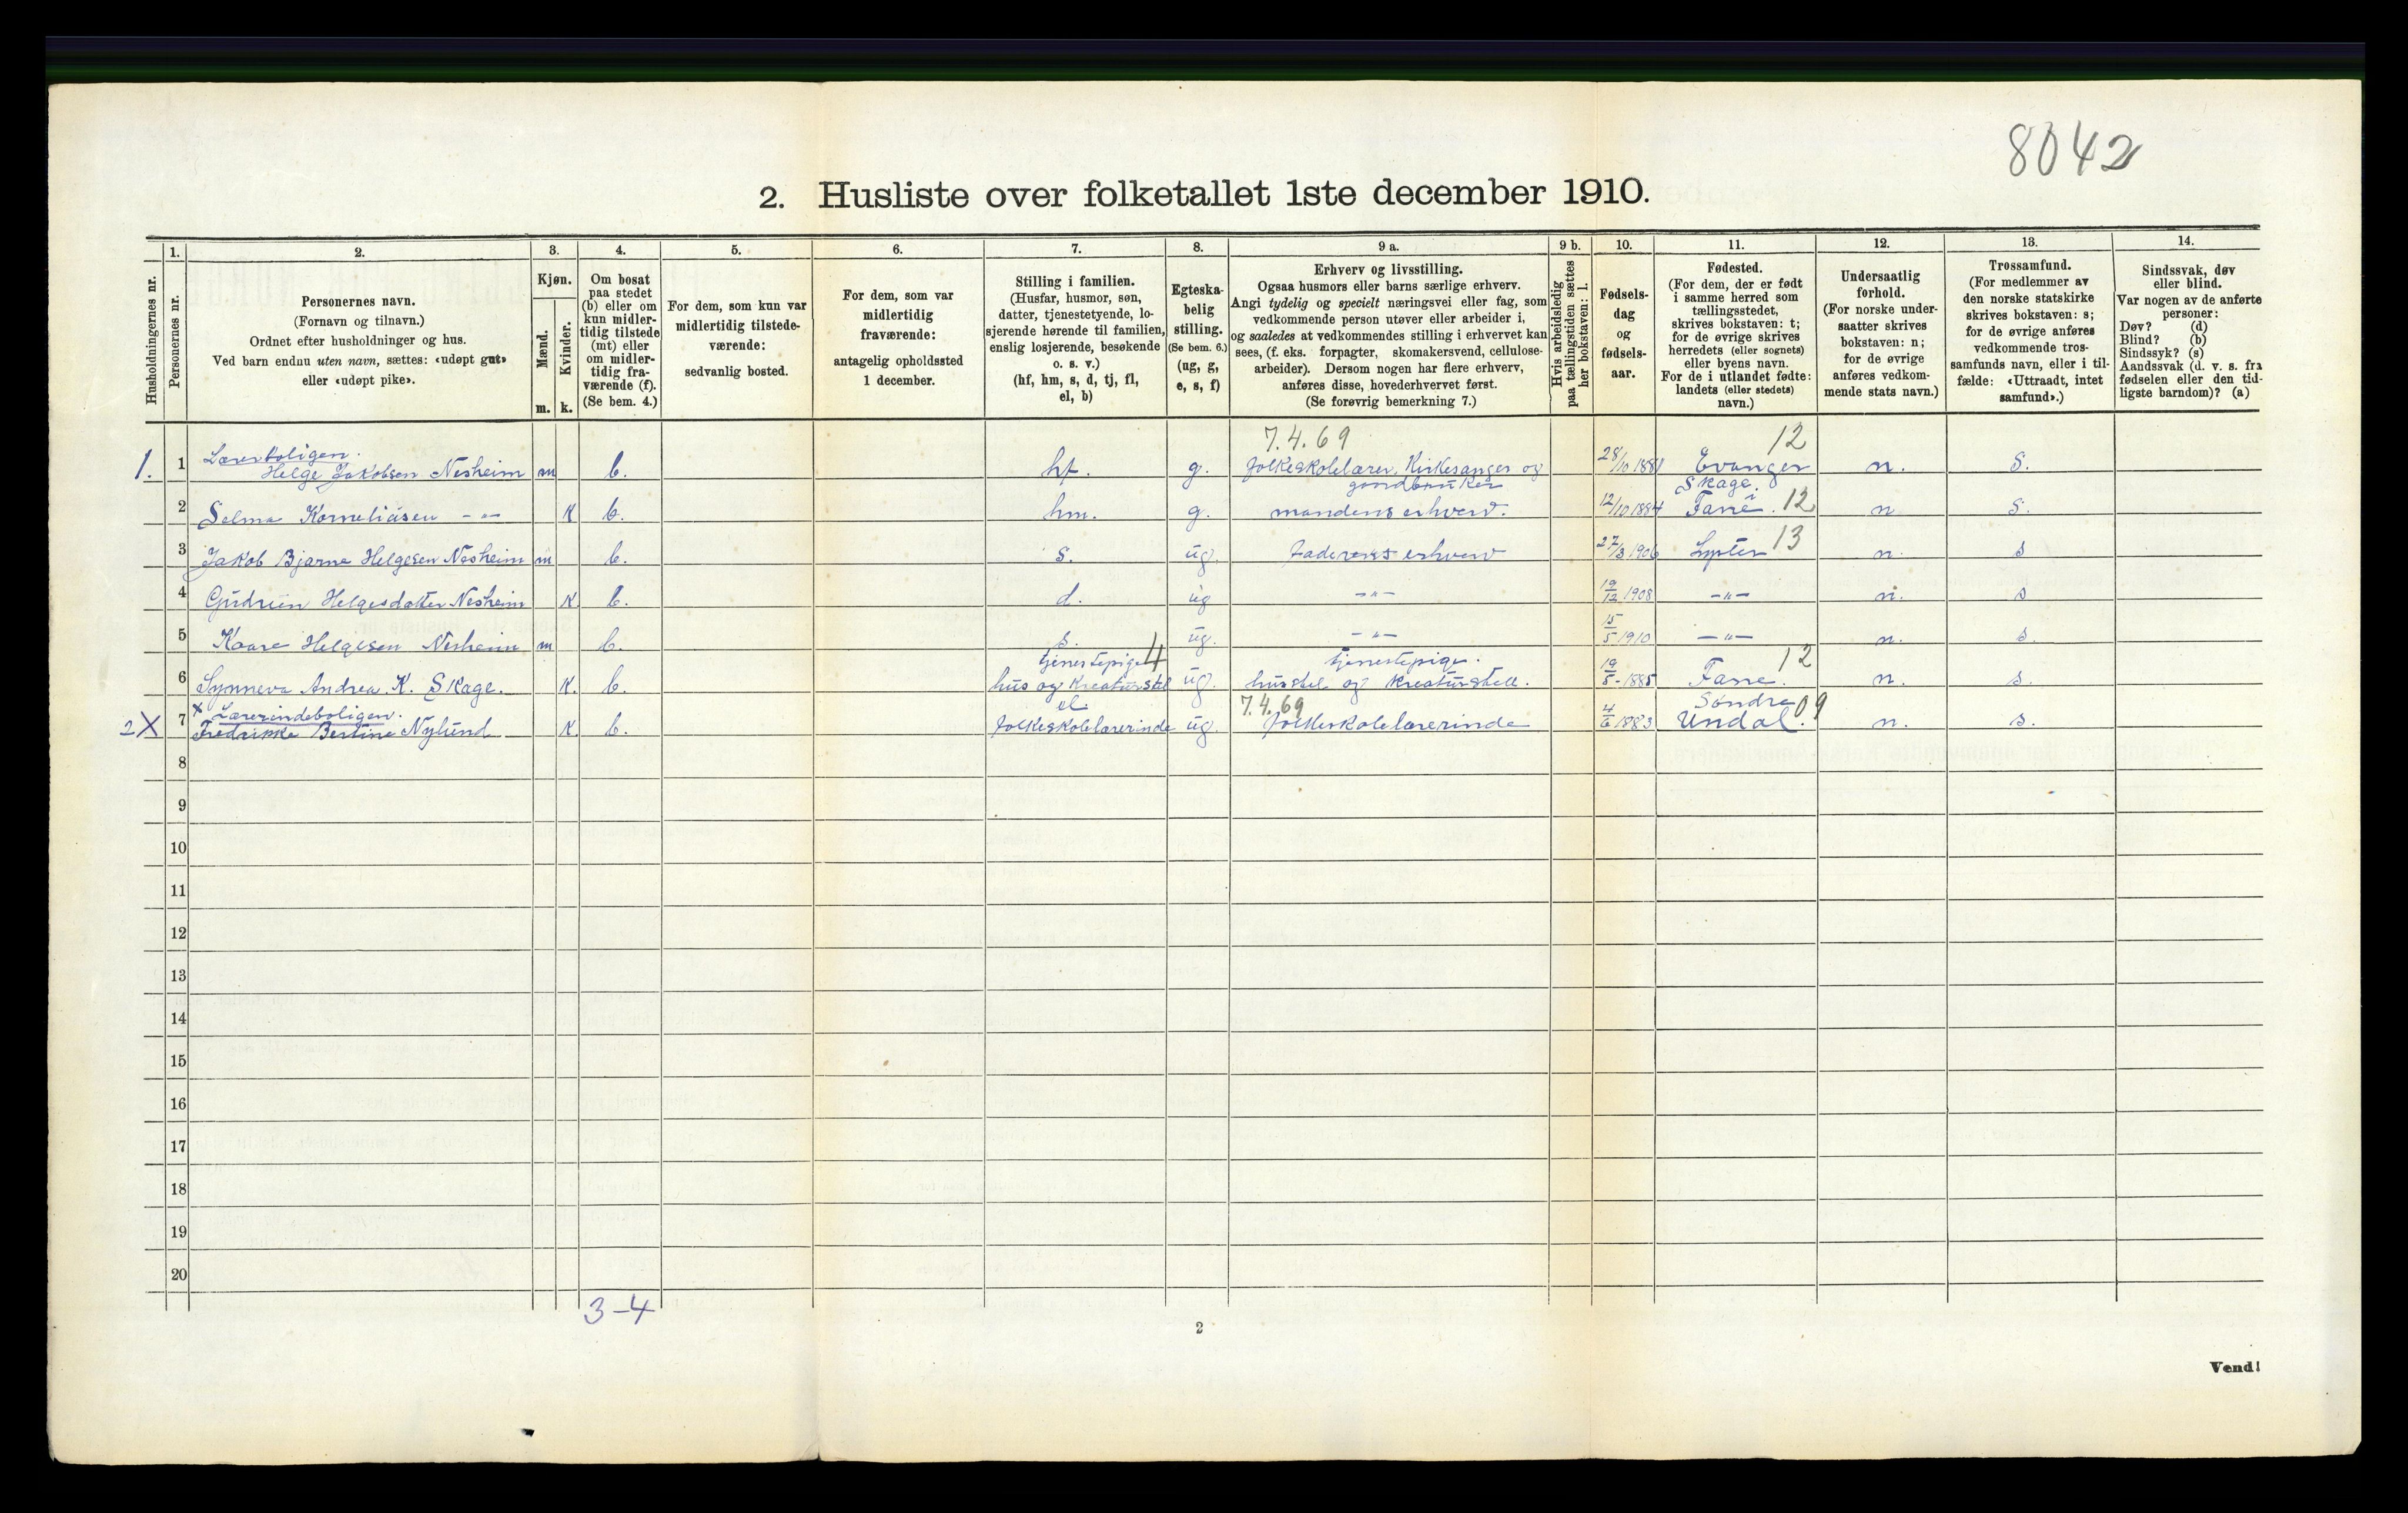 8042
2. Husliste over folketallet 1ste december 1910.
Husholdningernes nr.
1.
Personernes nr.
2.
Personernes navn.
(Fornavn og tilnavn.)
Ordnet efter husholdninger og hus.
Ved barn endnu uten navn, sættes: «udøpt gut»
eller «udøpt pike».
3.
Kjøn.
Mænd.
Kvinder.
m. k.
4.
Om bosat
paa stedet
(b) eller om
kun midler-
tidig tilstede
(mt) eller
om midler-
tidig fra-
værende (f).
(Se bem. 4.)
5.
For dem, som kun var
midlertidig tilstede-
værende:
sedvanlig bosted.
6.
For dem, som var
midlertidig
fraværende:
antagelig opholdssted
1 december.
7.
Stilling i familien.
(Husfar, husmor, søn,
datter, tjenestetyende, lo-
sjerende hørende til familien,
enslig losjerende, besøkende
o. s. v.)
(hf, hm, s, d, tj, fl,
el, b)
8.
Egteska-
belig
stilling.
(Se bem. 6.)
(ug, g,
e, s, f)
9 a.
Erhverv og livsstilling.
Ogsaa husmors eller barns særlige erhverv.
Angi tydelig og specielt næringsvei eller fag, som
vedkommende person utøver eller arbeider i,
og saaledes at vedkommendes stilling i erhvervet kan
sees, (f. eks. forpagter, skomakersvend, cellulose-
arbeider). Dersom nogen har flere erhverv,
anføres disse, hovederhvervet først.
(Se forøvrig bemerkning 7.)
9 b.
Hvis arbeidsledig
paa tællingstiden sættes
her bokstaven: l.
10.
Fødsels-
dag
og
fødsels-
aar.
11.
Fødested.
(For dem, der er født
i samme herred som
tællingsstedet,
skrives bokstaven: t;
for de øvrige skrives
herredets (eller sognets)
eller byens navn.
For de i utlandet fødte:
landets (eller stedets)
navn.)
12.
Undersaatlig
forhold.
(For norske under-
saatter skrives
bokstaven: n;
for de øvrige
anføres vedkom-
mende stats navn.)
13.
Trossamfund.
(For medlemmer av
den norske statskirke
skrives bokstaven: s;
for de øvrige anføres
vedkommende tros-
samfunds navn, eller i til-
fælde: «Uttraadt, intet
samfund».)
14.
Sindssvak, døv
eller blind.
Var nogen av de anførte
personer:
Døv? (d)
Blind? (b)
Sindssyk? (s)
Aandssvak (d. v. s. fra
fødselen eller den tid-
ligste barndom)? (a)
7.4.69 12
Lærerboligen.
1. 1 Helge Jakobsen Nesheim m b. hf. g. folkeskolelærer, Kirkesanger og 28/10 1881 Evanger n. s.
gaardbruker Skage
2 Selma Korneliusen -"- k b. hm. g. mandens erhverv. 12/10 1884 Fane. 12 n s.
3 Jakob Bjarne Helgesen Nesheim m b. s. ug. Faderens erhverv 27/3 1906 Lyster 13 n. s
4 Gudrun Helgesdatter Nesheim k b. d. ug -"- 19/12 1908 -"- n. s
5 Kaare Helgesen Nesheim m b. s. ug. -"- 15/5 1910 -"- n. s.
tjenestepige 4 tjenestepige. 12
6 Synneva Andrea K. Skage. k. b. hus og kreaturstel ug. husstel og kreaturstell. 19/5 - 1885 Fane. n. s.
x Lærerindeboligen. el. 7.4.69 Søndre 09
2 X 7 Fredrikke Bertine Nylund k. b. folkeskolelærerinde ug. folkeskolelærerinde 4/6 1883 Undal. n. s.
8
9
10
11
12
13
14
15
16
17
18
19
20
3-4
2
Vend!